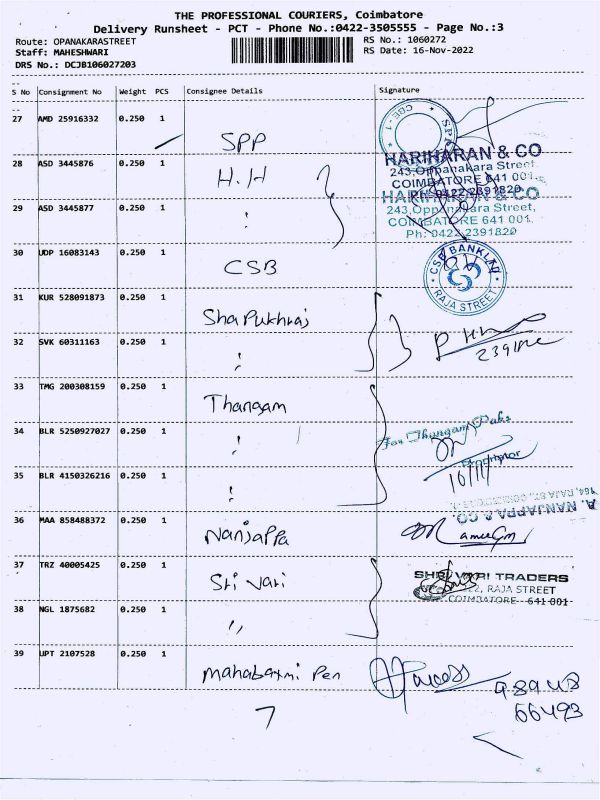 THE PROFESSIONAL COURIERS, Coimbatore
Delivery Runsheet - PCT - Phone No.:0422-3505555 - Page No.:3
Route: OPANAKARASTREET
RS No.: 1060272
Staff: MAHESHWARI
RS Date: 16-Nov-2022
DRS No.: DCJB106027203
S No Consignment No Weight PCS Consignee Details Signature
27 AMD 25916332 0.250 1 SPP
CBE - 1
28 ASD 3445876 0.250 1 H.H
HARIHARAN & CO
243, Oppanakara Street
COIMBATORE 641 001.
Ph: 0422 2391820
29 ASD 3445877 0.250 1 "
HARIHARAN & CO
243, Oppanakara Street,
COIMBATORE 641 001.
Ph: 0422 2391820
30 UDP 16083143 0.250 1 CSB
CSB BANK LTD
RAJA STREET
31 KUR 528091873 0.250 1 Sha Pukhraj
32 SVK 60311163 0.250 1 "
33 TMG 200308159 0.250 1 Thangam
34 BLR 5250927027 0.250 1 "
For Thangam Paks
Proprietor
16/11/
35 BLR 4150326216 0.250 1 "
A. NANJAPPA & CO
36 MAA 858488372 0.250 1 Nanjappa
37 TRZ 40005425 0.250 1 Sri Vari
SHRI VARI TRADERS
RAJA STREET
COIMBATORE - 641 001
38 NGL 1875682 0.250 1 "
39 UPT 2107528 0.250 1 Mahalaxmi Pen
98948
66493
7